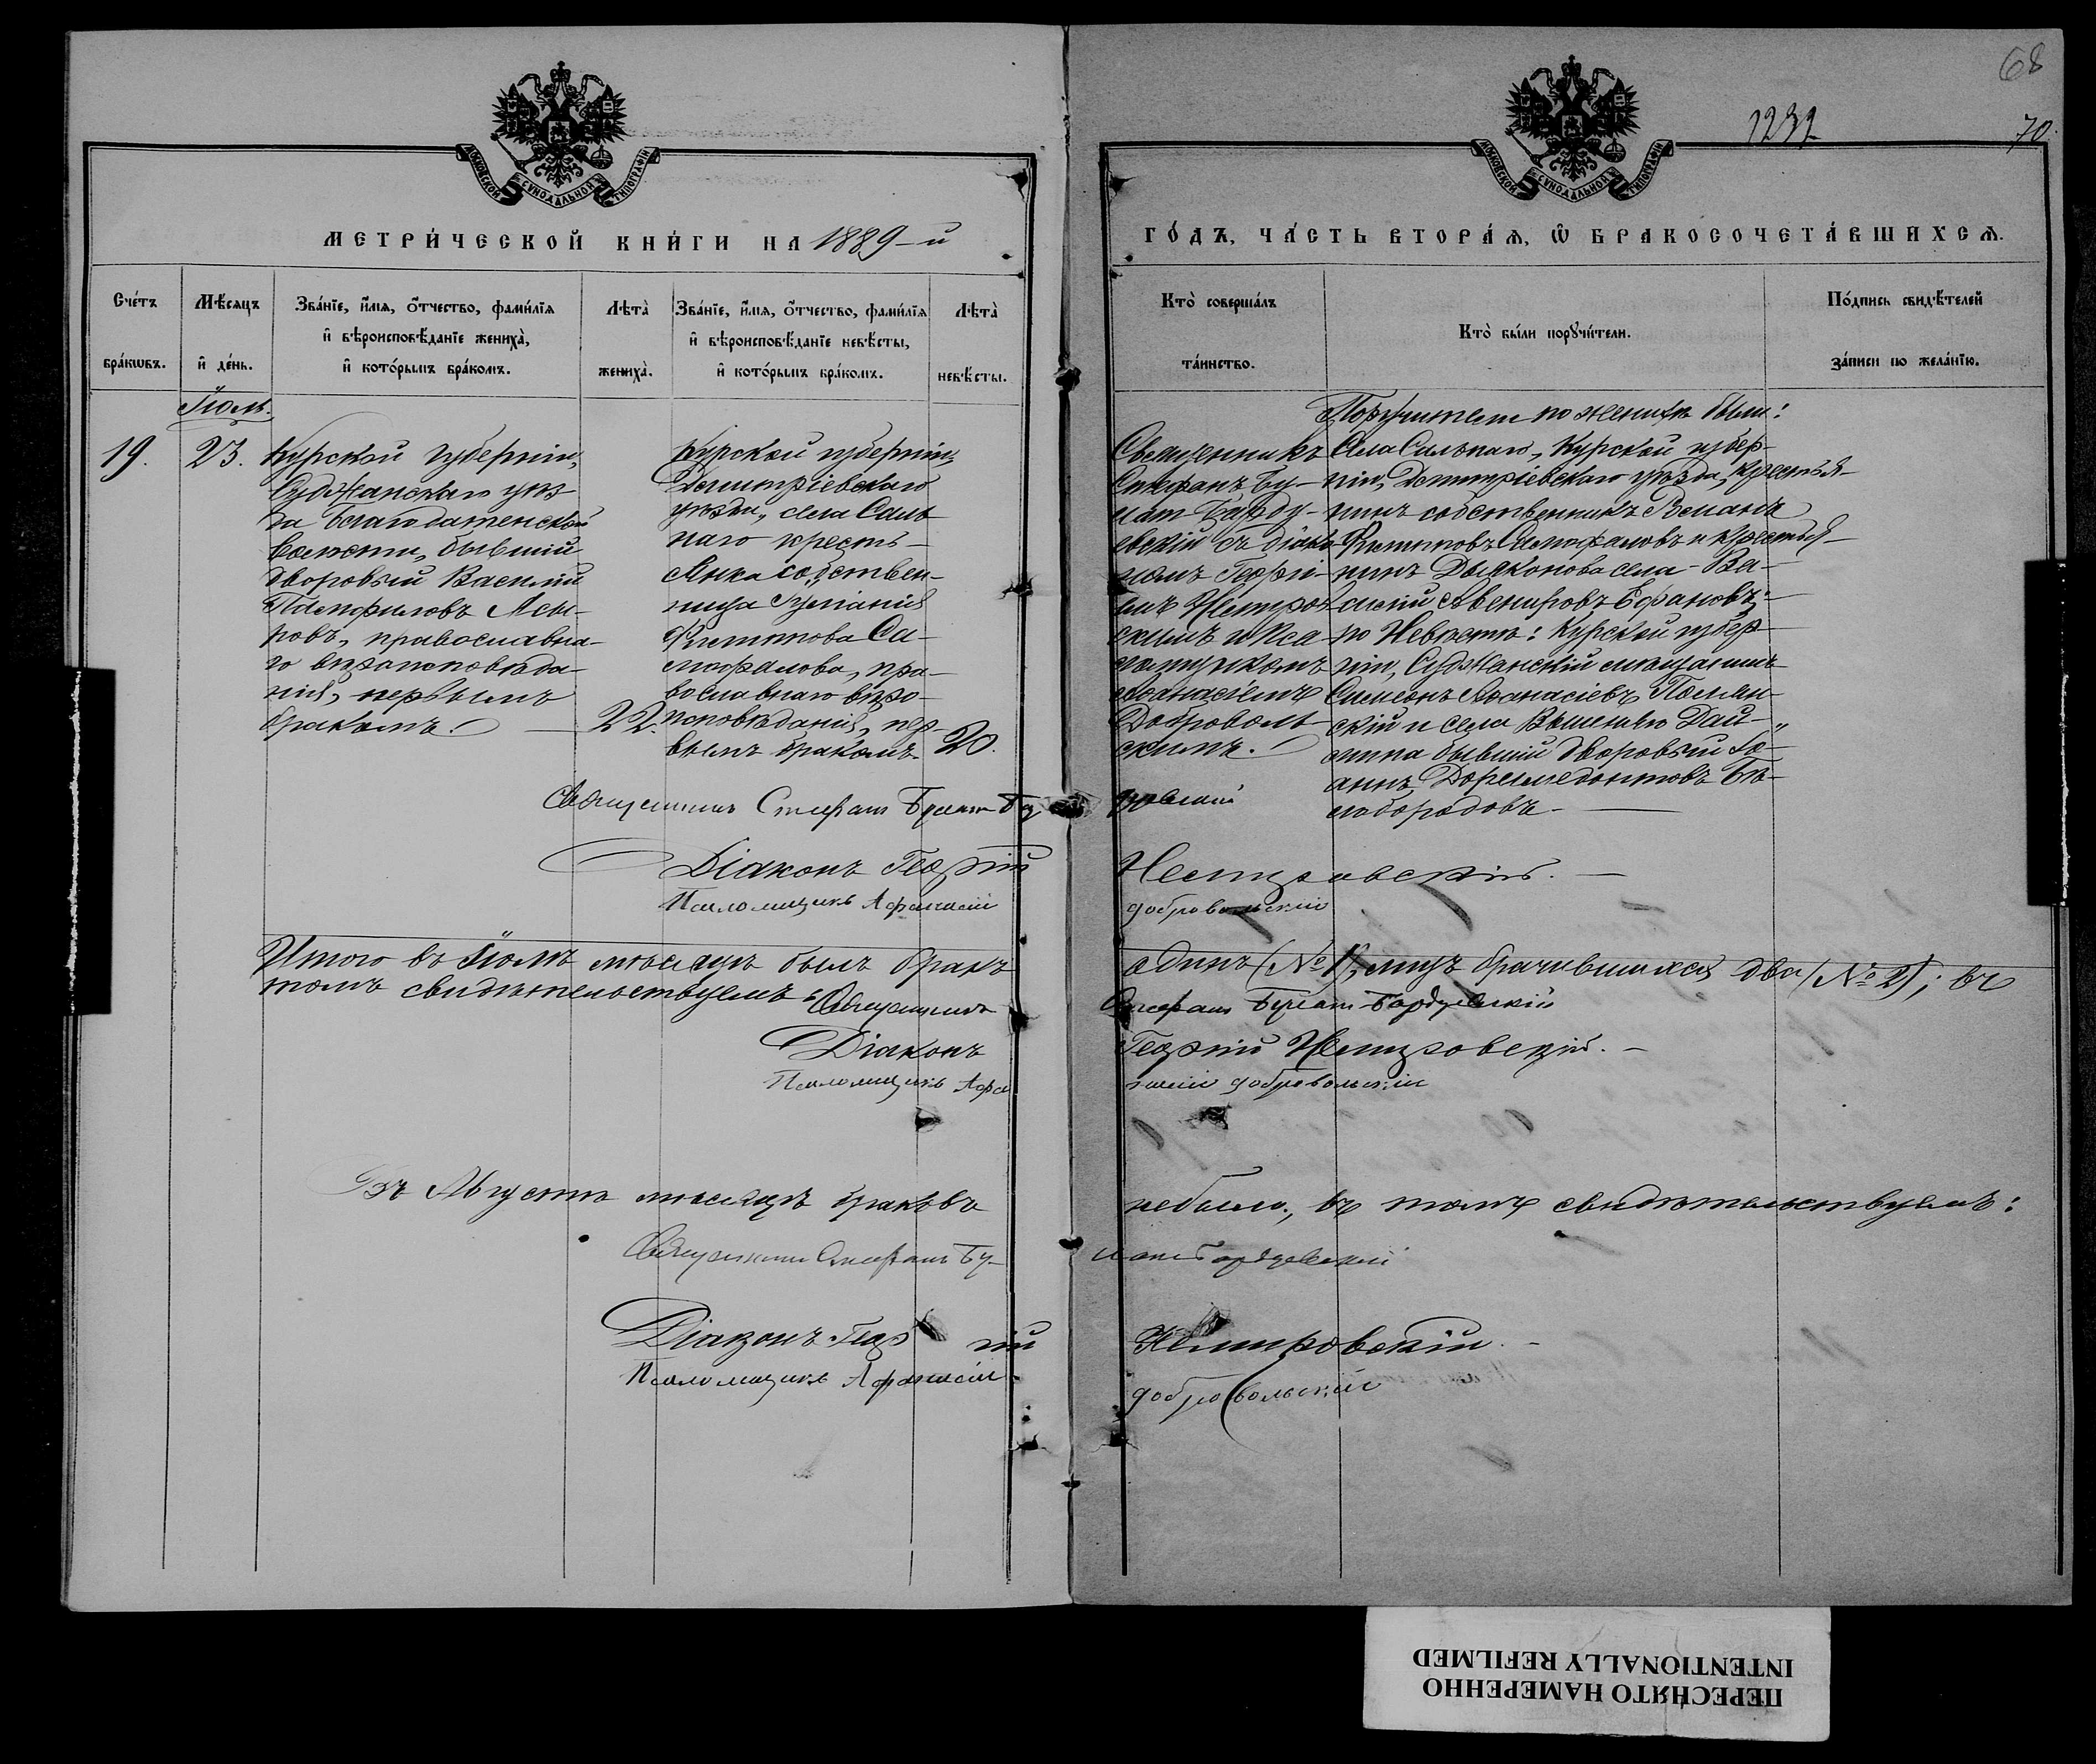 68
1232
70.
МОСКОВСКОЙ СУНОДАЛЬНОЙ ТИПОГРАФІИ
МОСКОВСКОЙ СУНОДАЛЬНОЙ ТИПОГРАФІИ
МЕТРИ́ЧЕСКОЙ КНИ́ГИ НА 1889-й
ГО́ДЪ, ЧА́СТЬ ВТОРА́Ѧ, Ѿ БРАКОСОЧЕТА́ВШИХСѦ.
Сче́тъ
бра́кѡвъ.
Мѣ́сѧцъ
и҆ де́нь.
Зва́нїе, и҆́мѧ, ѻ҆́тчество, фами́лїѧ
и҆ вѣроисповѣ́данїе жениха̀,
и҆ кото́рымъ бра́комъ.
Лѣта̀
жениха̀.
Зва́нїе, и҆́мѧ, ѻ҆́тчество, фами́лїѧ
и҆ вѣроисповѣ́данїе невѣ́сты,
и҆ кото́рымъ бра́комъ.
Лѣта̀
невѣ́сты.
Кто̀ соверша́лъ
та́инство.
Кто̀ бы́ли порꙋчи́тели.
По́дпись свидѣ́телей
за́писи по жела́нїю.
Іюль.
19.
23.
Курской губерніи,
Суджанскаго уѣз-
да Благодатенской
волости, бывшій
дворовый Василій
Памфиловъ
ровъ, православна-
го вѣроисповѣда-
нія, первымъ
бракомъ.
22.
Курской губерніи,
Дмитріевскаго
уѣзда, села Саль
наго кресть-
янка собствен-
ница
Филиппова Са-
мофалова, пра-
вославнаго вѣро-
исповѣданія, пер-
вымъ бракомъ.
20.
Священникъ
Стефанъ Бу-
натъ Барду-
евскій съ діако
номъ Георгі-
емъ Немиров
скимъ и Пса-
ломщикомъ
Аѳанасіемъ
Доброволь-
скимъ.
Поручители по женихѣ были:
Села Сальнаго, Курской губер-
ніи, Дмитріевскаго уѣзда, крестья-
нинъ собственникъ Романъ
Филипповъ Самофаловъ и крестья-
нинъ Дьяконова села Ва-
силій Авенировъ Ефановъ;
по Невѣстѣ: Курской губер-
ніи, Суджанскій мѣщанинъ
Симеонъ Аѳанасіевъ
скій и села
бывшій дворовый Іо-
аннъ Доримедонтовъ Бѣ-
лобородовъ.
Священникъ Стефанъ
Діаконъ Георгій Немировскій.
Псаломщикъ Афанасій Добровольскій
Итого въ Іюлѣ мѣсяцѣ былъ бракъ одинъ (№ 1), лицъ брачившихся два (№ 2); въ
томъ свидѣтельствуемъ: Священникъ Стефанъ
Діаконъ Георгій Немировскій.
Псаломщикъ Афанасій Добровольскій
Въ Августѣ мѣсяцѣ браковъ небыло, въ томъ свидѣтельствуемъ:
Священникъ Стефанъ
Діаконъ Георгій Немировскій.
Псаломщикъ Афанасій Добровольскій
ПЕРЕСНЯТО НАМЕРЕННО
INTENTIONALLY REFILMED